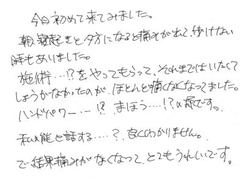 今日初めて来てみました。
朝、寝起きと夕方になると痛みが出て、動けない
時もありました。
施術…!?をやってもらって、それまではいたくて
しょうがなかったのが、ほとんど痛くなくなってました。
ハンドパワー…!? まほう…!?な感じです。
私に能と話する…?、良くわかりません。
で、結果痛みがなくなって、とてもうれしいです。